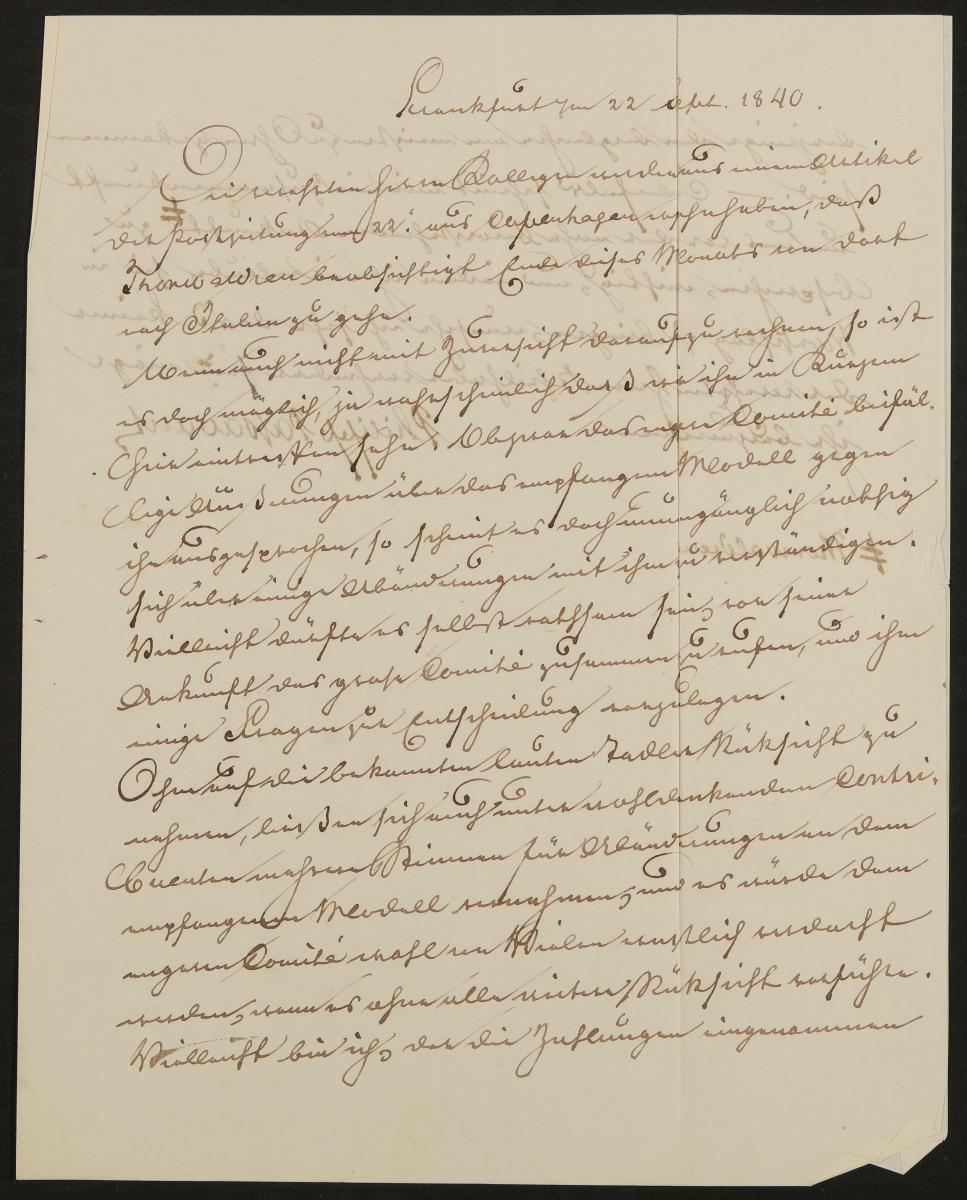 Frankfurt den 22 Sept. 1840.
Die verehrten Herrn Collegen werden aus einem Artikel
der Postzeitung vom 22t. aus Copenhagen ersehn haben, daß
Thorwaldsen beabsichtigt Ende dieses Monats von dort
nach Italien zu gehn.
Wenn auch nicht mit Zuversicht darauf zu rechnen, so ist
es doch möglich, ja wahrscheinlich daß wir ihn in Kurzem
hier eintreffen sehn. Obzwar das engere Comité beifäl-
lige Äußerungen über das empfangene Modell gegen
ihn ausgesprochen, so scheint es doch unumgänglich nöthig
sich über einige Abänderungen mit ihm zu verständigen.
Vielleicht dürfte es selbst rathsam sein, vor seiner
Ankunft das große Comité zusammen zu rufen, und ihm
einige Fragen zur Entscheidung vorzulegen.
Ohne auf die bekannten lauten Tadler Rüksicht zu
nehmen, ließen sich auch unter wohldenkenden Contri-
buenten mehrere Stimmen für Abänderungen an dem
empfangenen Modell vernehmen, und es würde dem
engeren Comité wohl von Vielen ernstlich verdacht
werden, wenn es ohne alle weitere Rüksicht vorführe.
Vielleicht bin ich, der die Zahlungen eingenommen